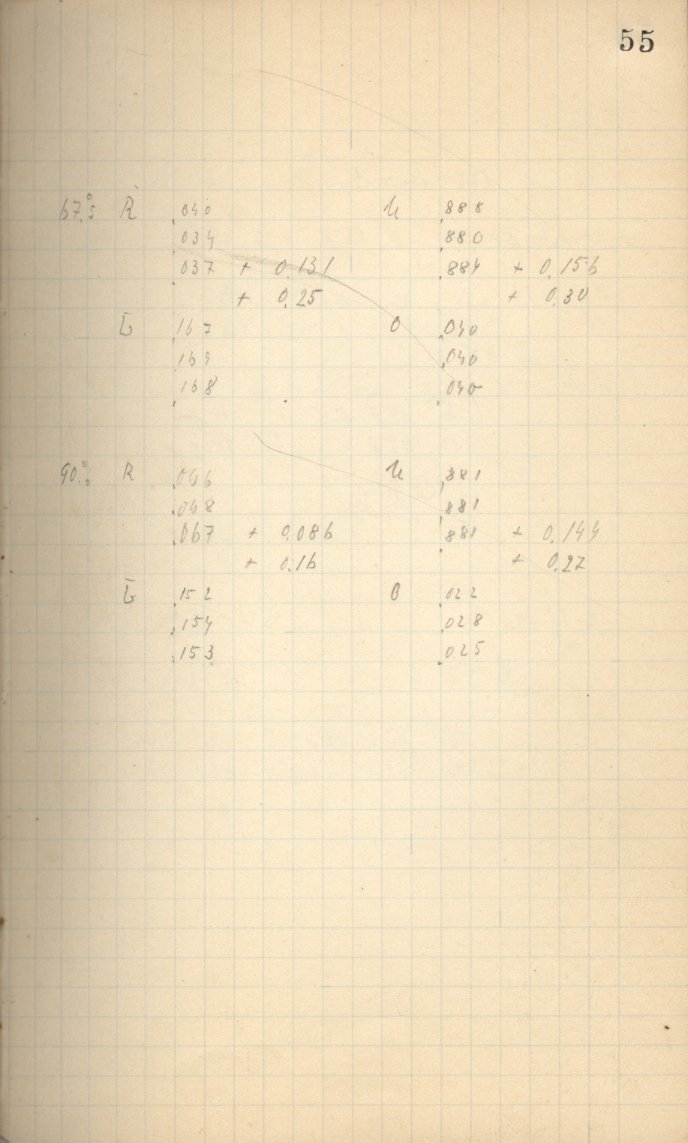 55
67.°5 R .040 U .888
.034 .880
.037 + 0.131 .884 + 0.156
+ 0.25 + 0.30
L .167 O .040
.169 .040
.168 .040
90.°0 R .066 U .881
.068 .881
.067 + 0.086 .881 + 0.144
+ 0.16 + 0.27
L .152 O .022
.154 .028
.153 .025